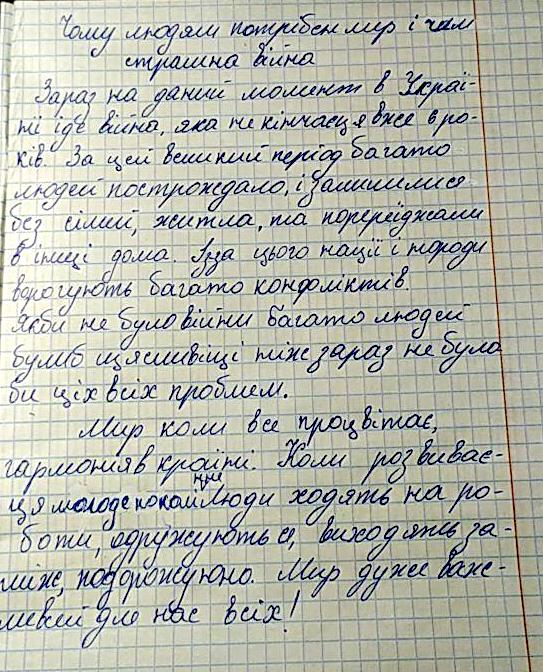 Чому людям потрібен мир і чим
страшна війна
Зараз на даний момент в Украї-
ні іде війна, яка не кінчаєця вже 8 ро-
ків. За цей великий період багато
людей построждало, і залишилися
без сімий, житла, та переїджали
в інші дома. Ізза цього нації і народи
ворогують багато конфліктів.
Якби не було війни багато людей
булиб щясливіщі ніж зараз не було
би ціх всіх проблем.
Мир коли все процвітає,
гармонія в країні. Коли розвиває-
ця молоде поколіннє люди ходять на ро-
боти, одружуються, виходять за-
між, подорожують. Мир дуже важ-
ливий для нас всіх!